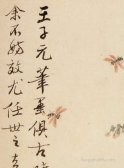 王子元筆墨俱古
余不妨效尤任世之